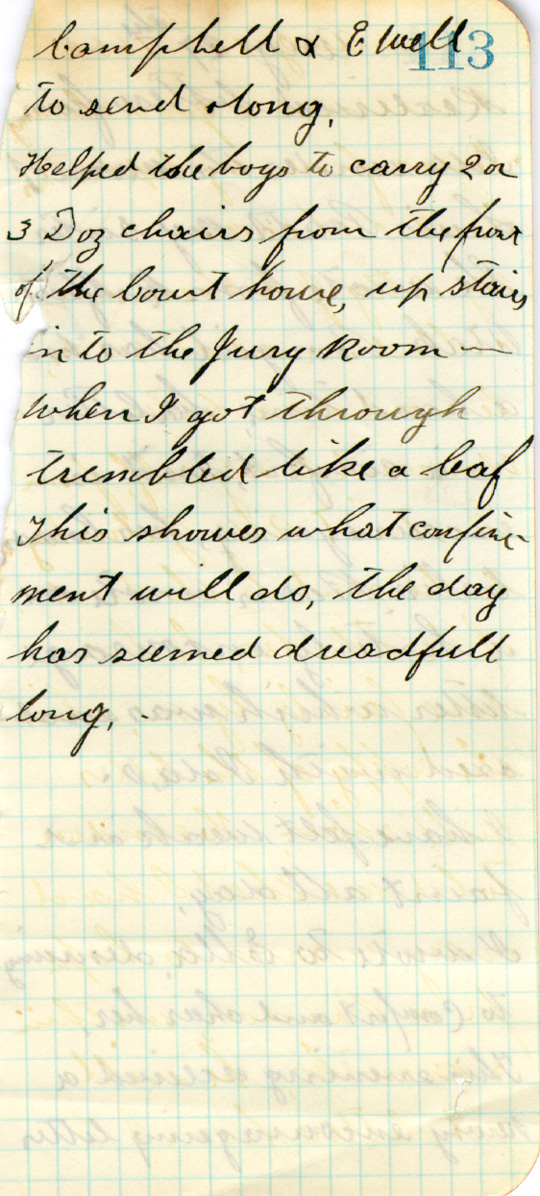 113
Campbell & Ewell
to send along,
Helped the boys to carry 2 or
3 Doz chairs from the front
of the Court house, up stairs
in to the Jury Room —
when I got through
trembled like a leaf
This showes what confine-
ment will do, the day
has seemed dreadfull
long,.